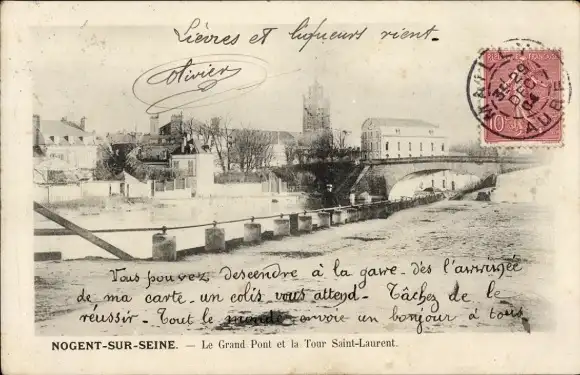 Lièvres et liqueurs rient.
Olivier
RÉPUBLIQUE FRANÇAISE
10
29
DEC
04
AUBE
Vous pouvez descendre à la gare. dès l'arrivée
de ma carte. un colis vous attend. Tâchez de le
réussir. Tout le monde envoie un bonjour à tous
NOGENT-SUR-SEINE. — Le Grand Pont et la Tour Saint-Laurent.